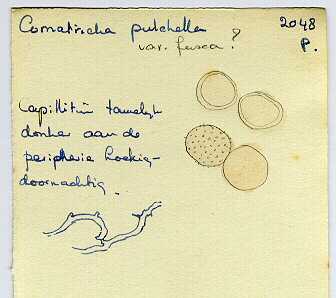 Comatricha pulchella 2048
var. fusca? P.
Capillitiu tamelyk
donker aan de
peripherie hoekig-
doornachtig.